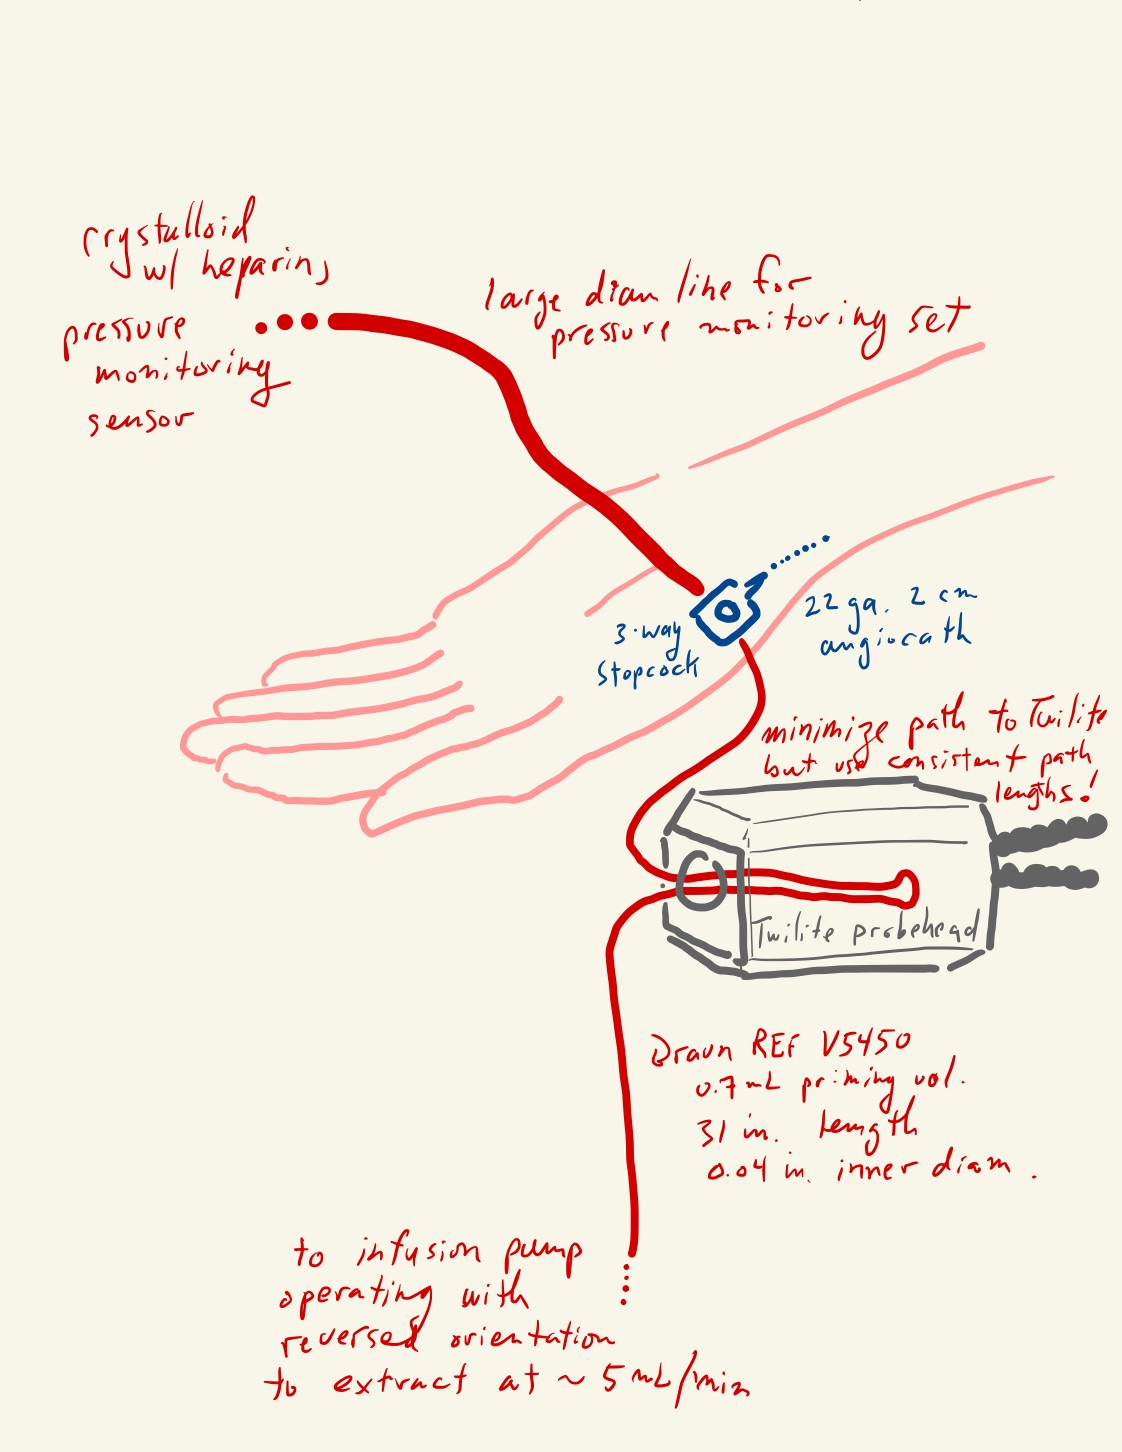 crystalloid
w/ heparin,
pressure
monitoring
sensor
large diam line for
pressure monitoring set
3-way
stopcock
22 ga. 2 cm
angiocath
minimize path to Twilite
but use consistent path
lengths!
Twilite probehead
Braun REF V5450
0.7 mL priming vol.
31 in. length
0.04 in. inner diam.
to infusion pump
operating with
reversed orientation
to extract at ~ 5 mL/min